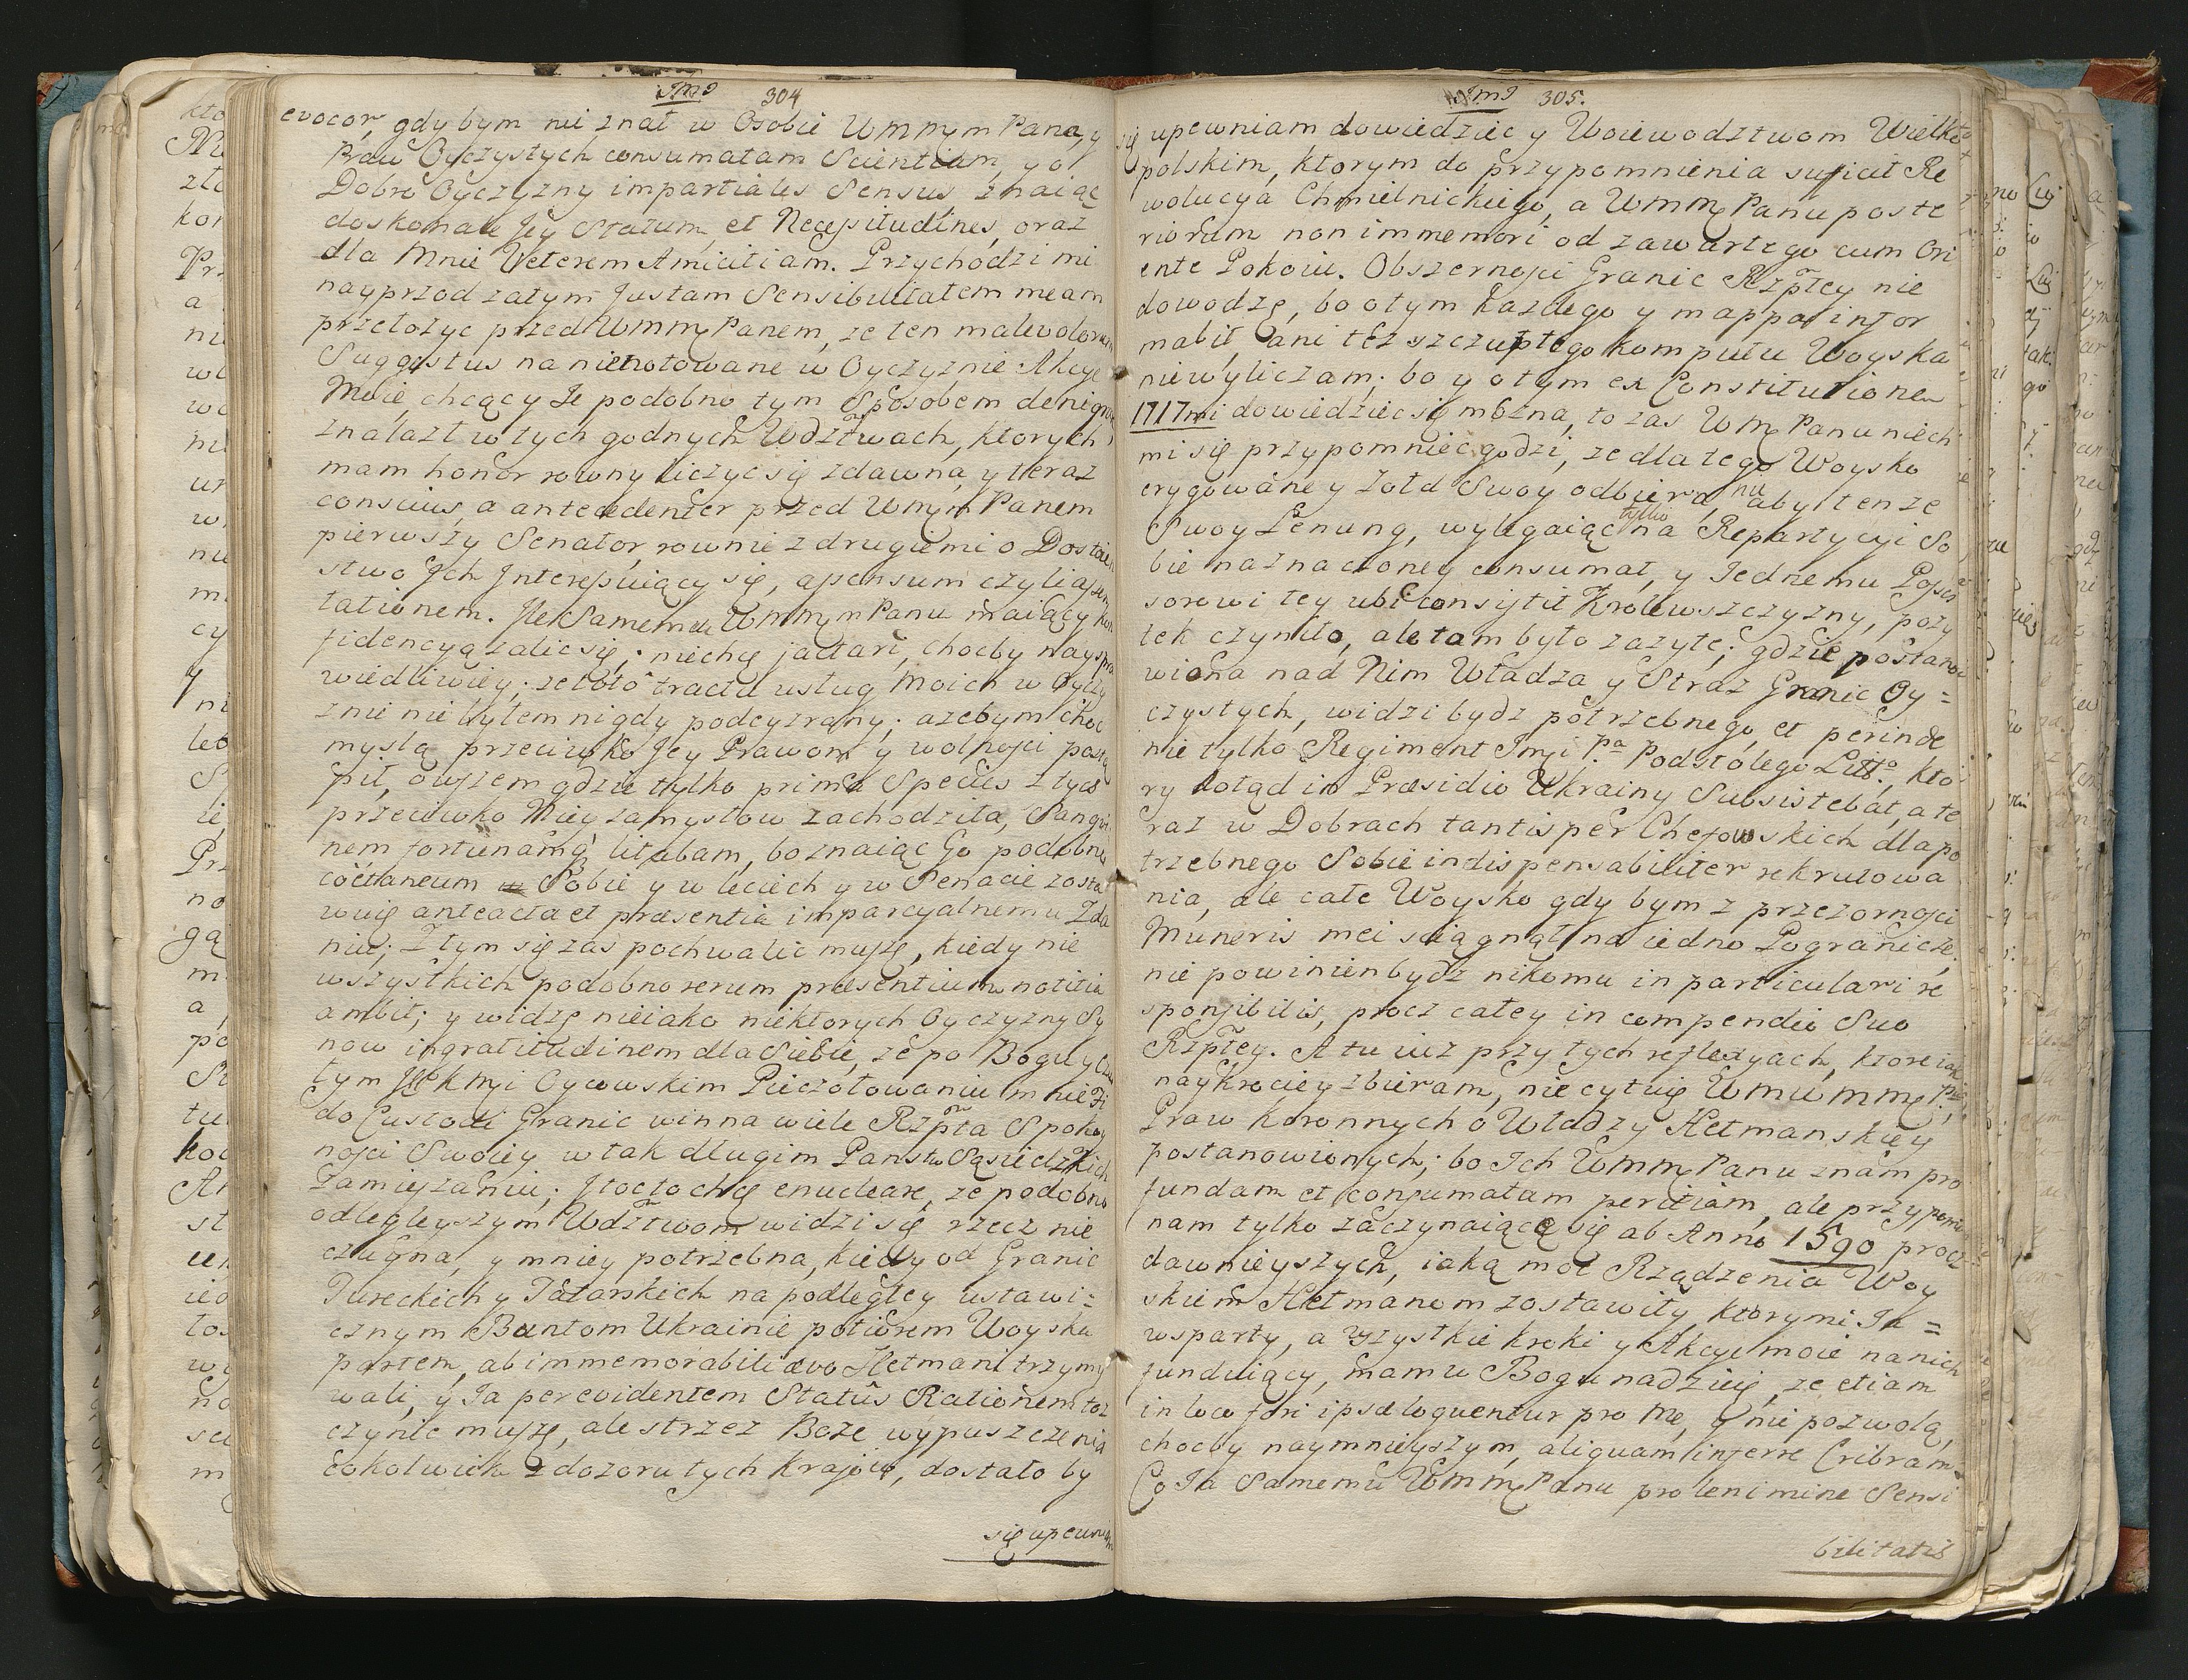 304
evocor, gdy bym nie znał w Osobie Wmmym Pana, y
Praw Oyczystych consumatam Scientiam, y o
Dobro Oyczyzny impartiales Sensus, znaiąc
doskonale Jey Statum, et Necessitudines, oraz
dla Mnie Veterem Amicitiam. Przychodzi mi
nayprzod zatym Justam Sensibilitatem meam
przełożyc przed Wmm Panem, ze ten malevolorum
Suggestus na nienotowane w Oyczyznie Akcye
Moie, chcący Je podobno tym Sposobem denigrare
znalazł w tych godnych Wdztwach, ktorych
mam honor rowny liczyc się zdawna, y teraz
conscius, a antecedenter przed Wmym Panem
pierwszy Senator, rownie z drugiemi o Dostoien
stwo Jch Jnteressuiący się, apensum czyli assen
tationem. Jle Samemu Wmmym Panu maiący kon
fidencyą zalic się; niechcę jactari, chocby nayspra
wiedliwiey; ze toto tractu usług Moich w Oyczy
znie nie byłem nigdy podeyzrany; azebym choc
myslą przeciwko Jey Prawom y wolnosci postą
pił, owszem gdzie tylko prima Species z tych
przeciwko Niey zamysłow zachodziła, Sangvi
nem fortunamq; litabam, bo znaiąc Go podobno
coëtaneum Sobie y w leciech y w Senacie zosta
wuię anteacta et præsentia imparcyalnemu Zda
niu; Z tym się zas pochwalic muszę, kiedy nie
wszystkich podobno rerum præsentium notitia
ambit; y widzę nieiako niektorych Oyczyzny Sy
now ingratitudinem dla Siebie, ze po Bogu y
tym JKMci Oycowskim Pieczołowaniu mnie
do Custodi Granic winna wiele Rzpta Spokoy
nosci Swoiey w tak długim Panstw Sąsiedzkich
Zamięszaniu; Jtoc to chcę enucleare, ze podobno
odległeyszym Wdztwom widzi się rzecz nie
czuyna, y mniey potrzebna, kiedy od Granic
Tureckich y Tatarskich na podległey ustawi=
cznym Buntom Ukrainie potiorem Woyska
partem, ab immemorabili ævo Hetmani trzymy
wali, y Ja per evidentem Statûs Rationem toz
czynic muszę, ale strzez Boze wypuszczenia
cokolwiek z dozoru tych Krajow, dostało by
się upewniam
305.
się upewniam dowiedziec y Woiewodztwom Wielko
polskim, ktorym do przypomnienia suficit Re
wolucya Chmielnickiego, a Wmm Panu poste
riorum non immemori od zawartego cum Ori
ente Pokoiu. Obszernosci Granic Rzptey nie
dowodzę, bo o tym kazdego y mappa infor
mabit, ani tez szczupłego komputu Woyska
niewyliczam; bo y o tym ex Constitutione
1717mi dowiedziec się mozna, to zas Wm Panu niech
mi się przypomniec godzi, ze dla tego Woysko
erygowane y Zołd Swoy odbiera, nie aby ten ze
Swoy Lenung, wylegaiąc tylko na Repartycyi So
bie naznaczoney consumat, y Jednemu Posses
sorowi tey ubi consistit Krolewszczyzny, pozy
tek czyniło, ale tam było zazyte; gdzie postano
wiona nad Nim Władza y Straz Granic Oy=
czystych, widzi bydz potrzebnego, et perinde
nie tylko Regiment Jmci Pa Podstolego Litto, kto
ry dotąd in Præsidio Ukrainy Subsistebat, a te
raz w Dobrach tantisper Chefowskich dla po
trzebnego Sobie indispensabiliter rekrutowa
nia, ale całe Woysko gdy bym z przezornosci
Muneris mei sciągnął na iedno Pogranicze,
nie powinien bydz nikomu in particulari re
sponsibilis, procz całey in compendio Suo
Rzptey. A tu iuz przy tych reflexyach, ktore iak
naykrociey zbieram, nie cytuię Wmummm P.
Praw Koronnych o Władzy Hetmanskiey
postanowionych; bo Jch Wmm Panu znam pro
fundam et consumatam peritiam, ale przypomi
nam tylko zaczynaiącą się ab Anno 1590 procz
dawnieyszych, iaką moc Rządzenia Woy
skiem Hetmanom zostawiły, ktorymi Ja =
wsparty, a wszystkie kroki y Akcye moie na nich
funduiący, mam u Boga nadzieię, ze etiam
in loco fori ipsæ loquentur pro Me, y nie pozwolą,
chocby naymnieyszym, aliquam inferre Cribram.
Co Ja Samemu Wmm Panu pro lenimine Sensi
bilitatis